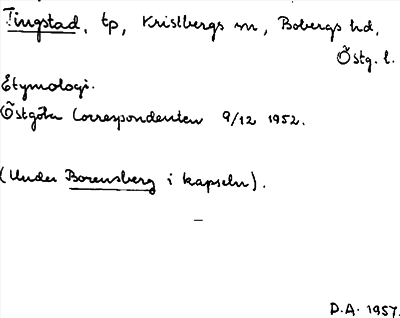 Tingstad, tp, Kristbergs sn, Bobergs hd,
Östg. l.
Etymologi.
Östgöta Correspondenten 9/12 1952.
(Under Borensberg i kapseln).
–
D.A. 1957.